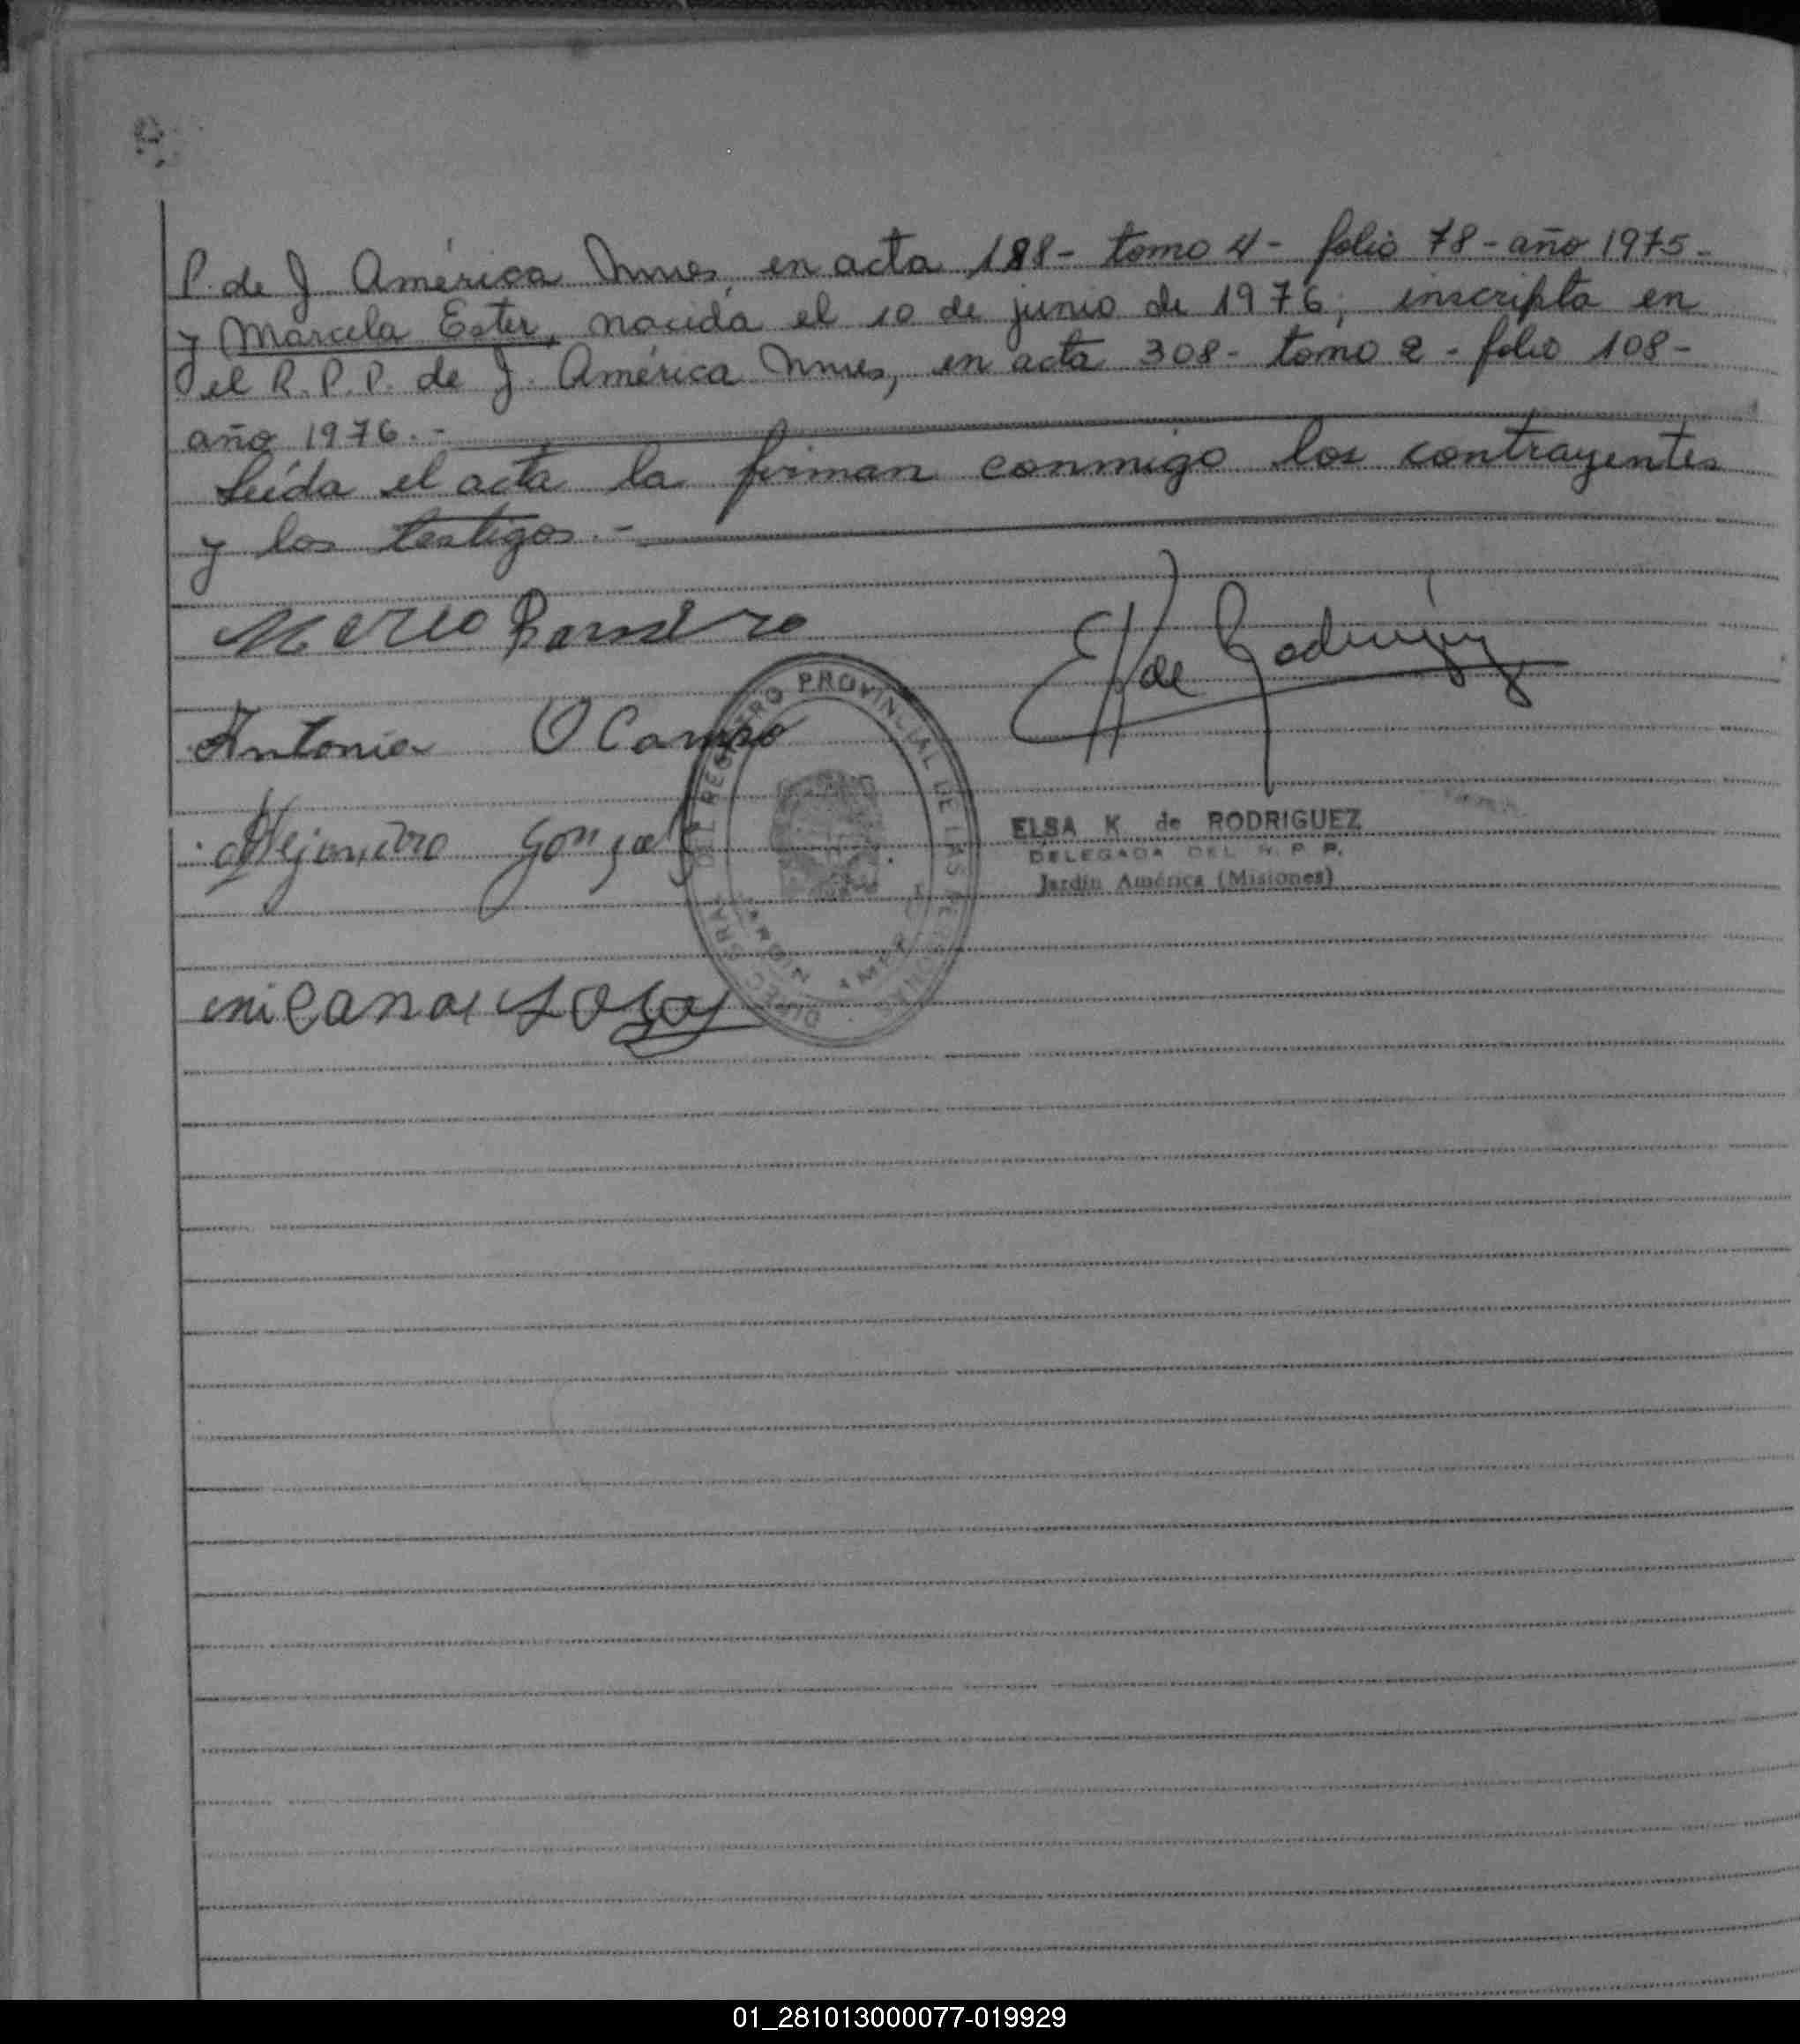 P. de J. América Mnes, en acta 188- tomo 4- folio 78- año 1975-
y Marcela Ester, nacida el 10 de junio de 1976, inscripta en
el R.P.P. de J. América Mnes, en acta 308- tomo 2- folio 108-
año 1976.-
Leída el acta la firman conmigo los contrayentes
y los testigos.-
Antonia OCampo
Alejandro
EK de Rodriguez
DIRECC. GRAL. DEL REGISTRO PROVINCIAL DE LAS PERSONAS
ELSA K. de RODRIGUEZ
DELEGADA DEL R. P. P.
Jardín América (Misiones)
01_281013000077-019929